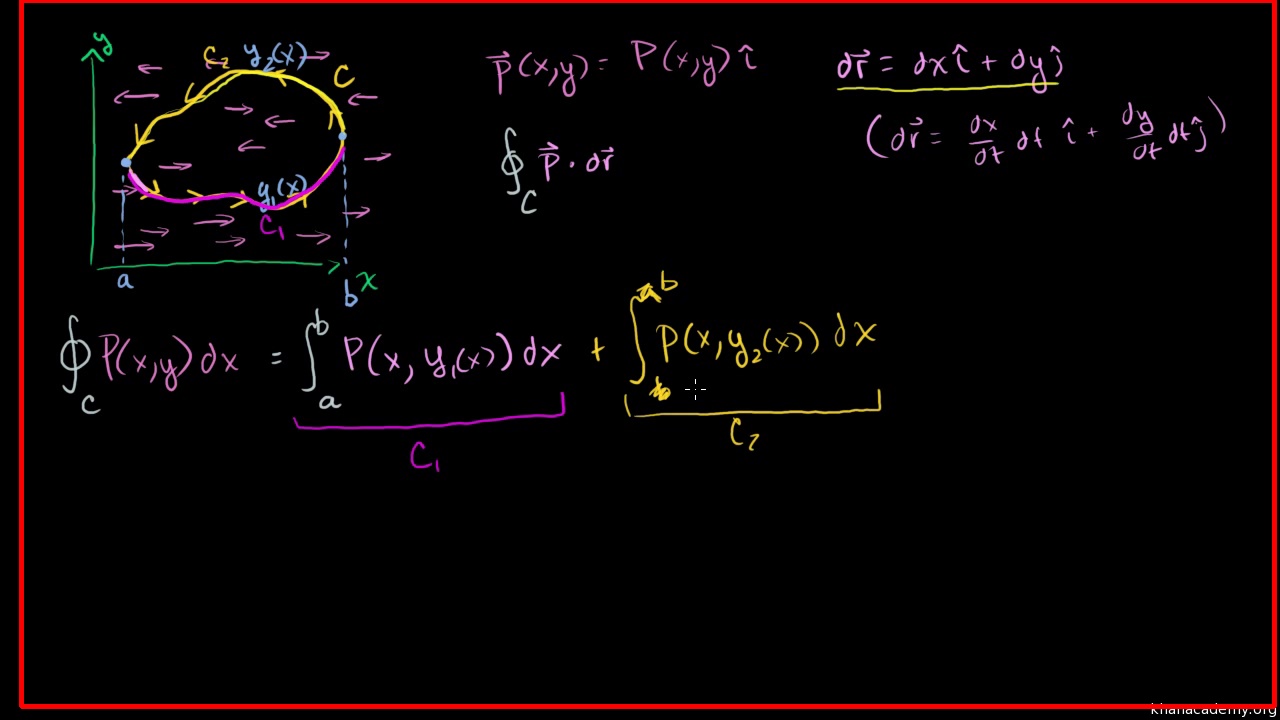 y
C₂ y₂(x)
C
y₁(x)
C₁
a
b
x
p⃗(x,y) = P(x,y) î
dr⃗ = dx î + dy ĵ
(dr⃗ = dx/dt dt î + dy/dt dt ĵ)
∮_C p⃗ · dr⃗
∮_C P(x,y) dx = ∫_a^b P(x, y₁(x)) dx + ∫^b P(x, y₂(x)) dx
C₁
C₂
khanacademy.org